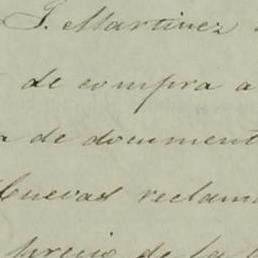 J. Martinez
de compra a
a de document
Cuevas reclam
precio de la